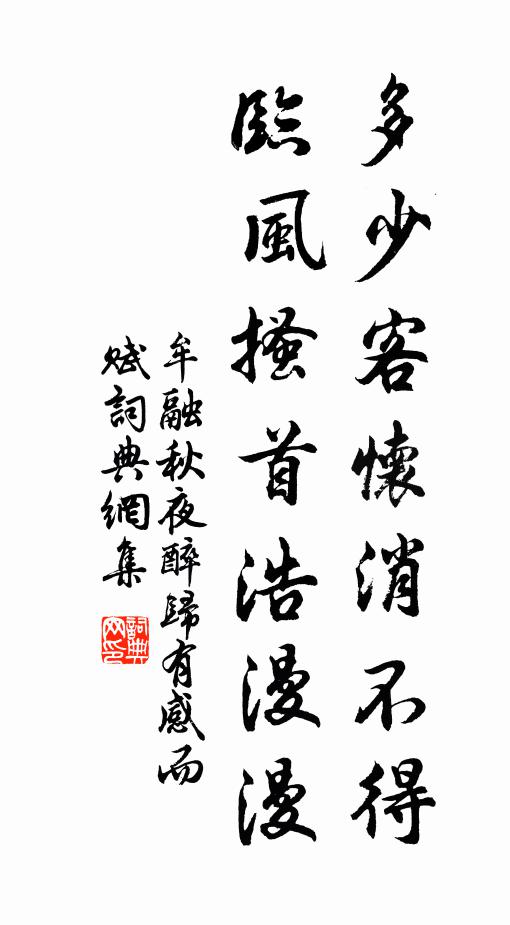 多少客懷消不得
臨風搔首浩漫漫
牟融秋夜醉歸有感而
賦詞典網集
詞典
网印